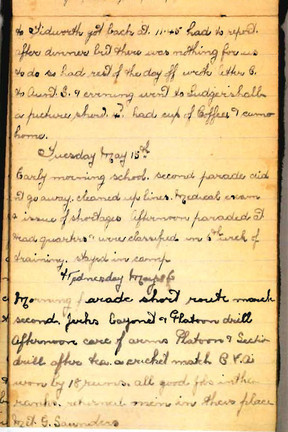 to Tidworth got back at 11.45 had to report
after dinner but there was nothing for us
to do so had rest of the day off wrote letter
to Aunt S. & evening went to Ludgershall
a picture show & had cup of Coffee & came
home.
Tuesday May 15th
Early morning school. second parade
it go away. cleaned up lines. Medical exam
& issue of shortages Afternoon paraded at
Head quarters were classified in 5th week of
training. stayed in camp
Wednesday May 16
Morning parade short route march
second jerks bayonet & Platoon drill
Afternoon care of arms Platoon & Section
drill after tea a cricket match
won by 18 runs. all good jobs in the
ranks. returned men in theirs place
met G. Saunders